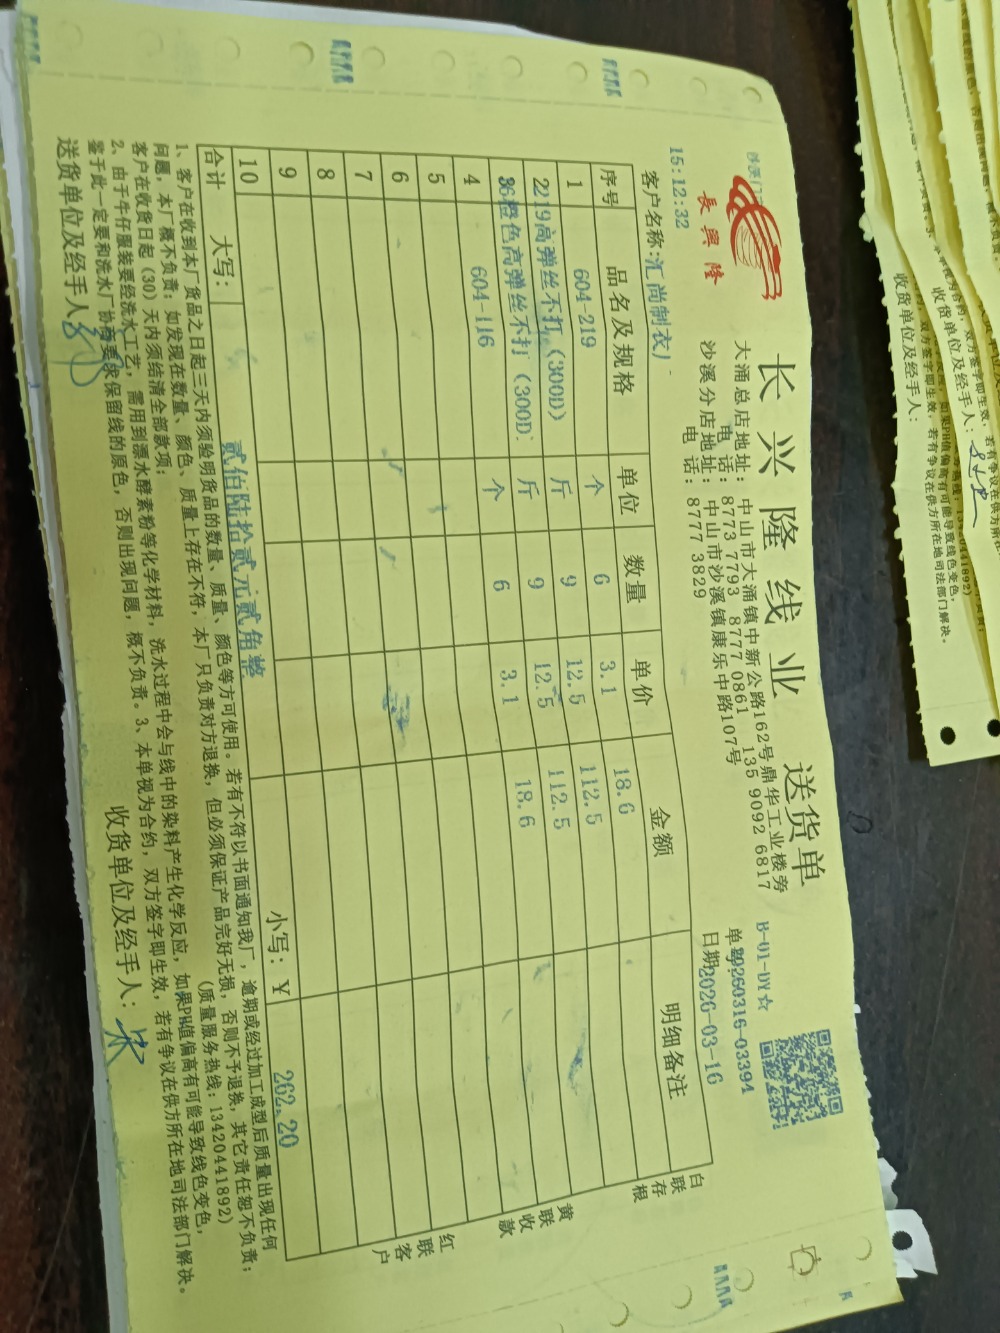 长兴隆线业 送货单
長興隆
大涌总店地址：中山市大涌镇中新公路162号鼎华工业楼旁
电 话：8773 7793 8777 0861 135 9092 6817
沙溪分店地址：中山市沙溪镇康乐中路107号
电 话：8777 3829
B-01-DY☆
单号：20260316-03394
15:12:32
客户名称：汇尚制衣厂
日期：2026-03-16
序号 品名及规格 单位 数量 单价 金额 明细备注
1 604-219 个 6 3.1 18.6
2 219高弹丝不打（300D） 斤 9 12.5 112.5
3 橙色高弹丝不打（300D 斤 9 12.5 112.5
4 604-116 个 6 3.1 18.6
5
6
7
8
9
10
合计 大写： 贰佰陆拾贰元贰角整 小写：￥ 262.20
白联存根
黄联收款
红联客户
1、客户在收到本厂货品之日起三天内须验明货品的数量、质量、颜色等方可使用。若有不符以书面通知我厂，逾期或经过加工成型后质量出现任何
问题，本厂概不负责；如发现在数量、颜色、质量上存在不符，本厂只负责对方退换，但必须保证产品完好无损，否则不予退换，其它责任恕不负责；
客户在收货日起（30）天内须结清全部款项； （质量服务热线：13420441892）
2、由于牛仔服装要经洗水工艺，需用到漂水酵素粉等化学材料，洗水过程中会与线中的染料产生化学反应，如果PH值偏高有可能导致线色变色，
鉴于此一定要和洗水厂协商要求保留线的原色，否则出现问题，概不负责。3、本单视为合约，双方签字即生效，若有争议在供方所在地司法部门解决。
送货单位及经手人： 收货单位及经手人：
收货单位及经手人：
收货单位及经手人：